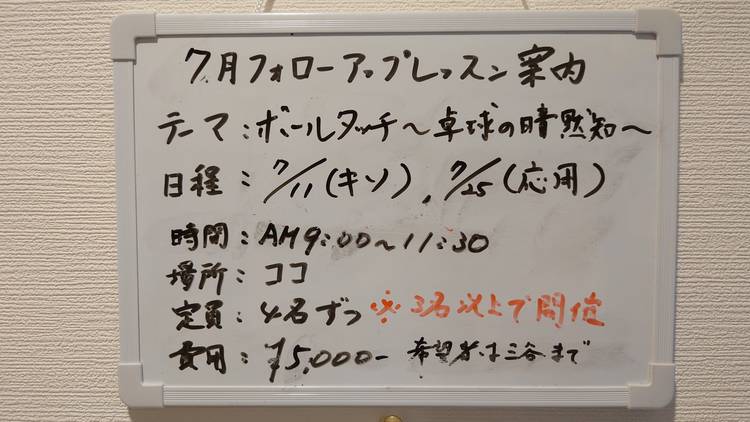 7月フォローアップレッスン案内
テーマ:ボールタッチ～卓球の暗黙知～
日程: 7/11(キソ), 7/25(応用)
時間:AM9:00～11:30
場所:ココ
定員:4名ずつ ※3名以上で開催
費用:¥5,000- 希望者は三谷まで